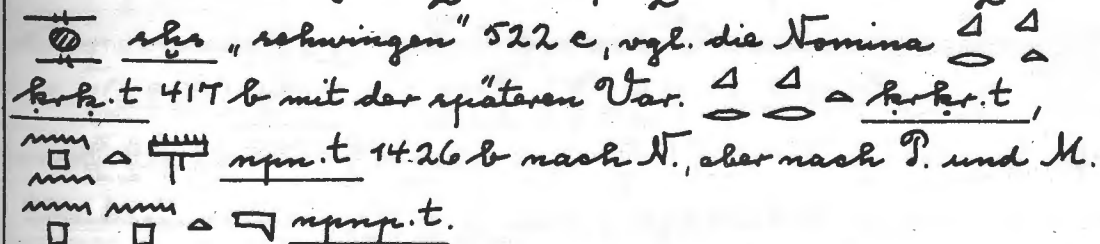 𓊃𓐍𓊃 sḫs „schwingen" 522 c, vgl. die Nomina 𓈎𓂋𓈎𓏏
ḳrḳ.t 417 b mit der späteren Var. 𓈎𓂋𓈎𓂋𓏏 ḳrḳr.t,
𓈖𓊪𓈖𓏏 npn.t 1426 b nach N., aber nach P. und M.
𓈖𓊪𓈖𓊪𓏏 npnp.t.